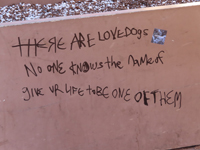 THERE ARE LOVE DOGS
NO ONE KNOWS the NAME of
give UR LIFE to BE ONE OF THEM